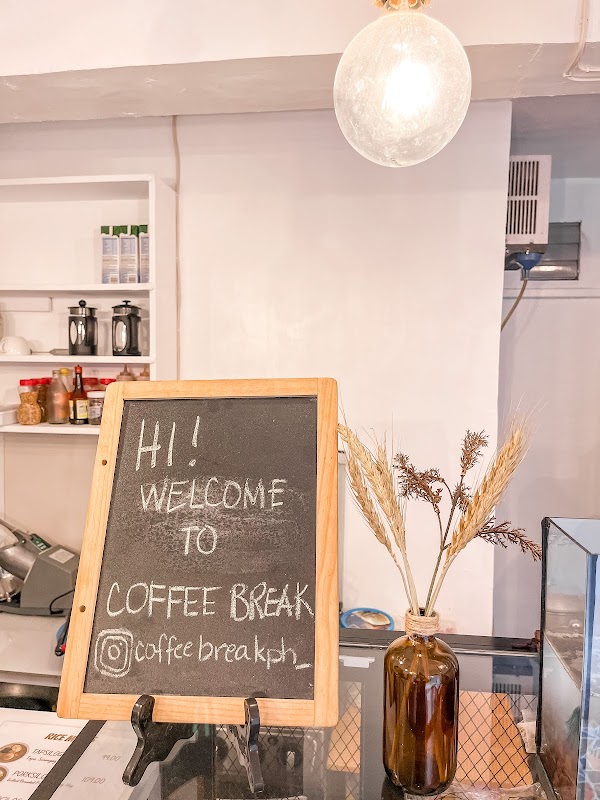 HI!
WELCOME
TO
COFFEE BREAK
coffeebreakph_
RICE
TAPSILOG
99.00
PORKSILOG
109.00